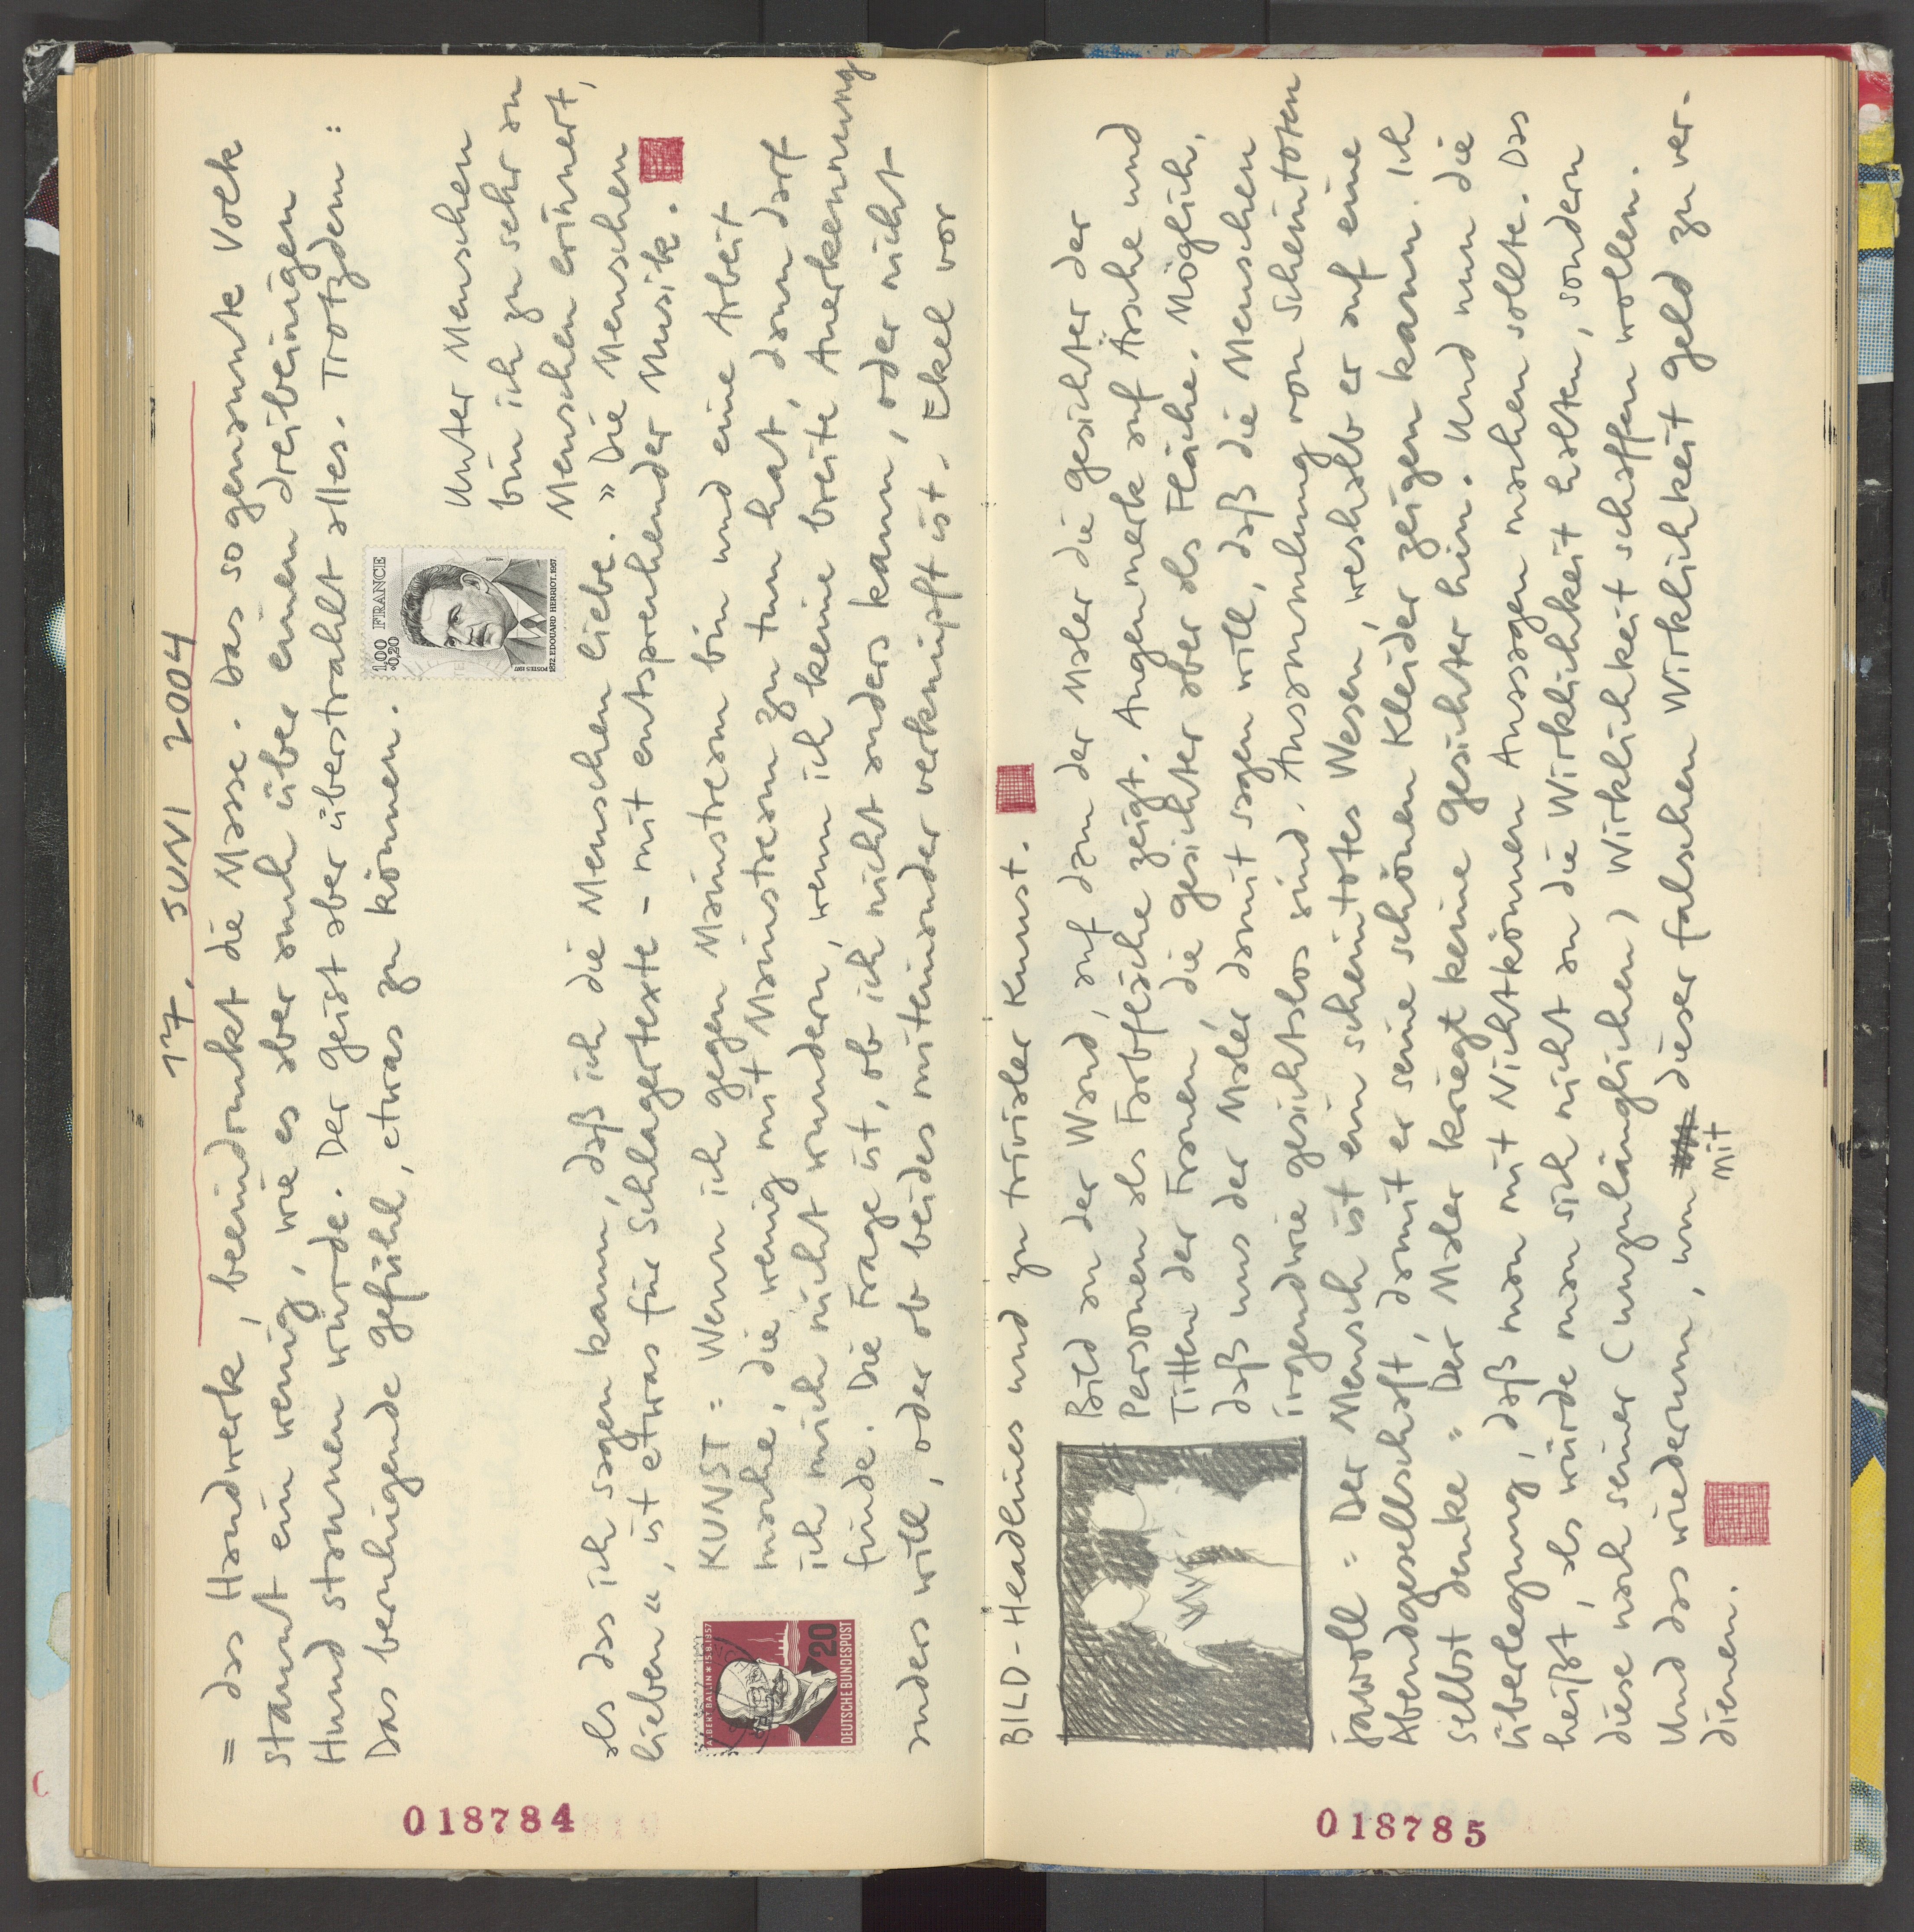 17. JUNI 2004
= das Handwerk, beeindruckt die Masse. Das sogenannte Volk
staunt ein wenig, wie es aber auch über einen dreibeinigen
Hund staunen würde. Der Geist aber überstrahlt alles. Trotzdem:
Das beruhigende Gefühl, etwas zu können.
1,00 FRANCE
+0,20
POSTES 1977
1872. EDOUARD HERRIOT. 1957
Unter Menschen
bin ich zu sehr an
Menschen erinnert,
als das ich sagen kann, daß ich die Menschen liebe. "Die Menschen
lieben", ist etwas für Schlagertexte - mit entsprechender Musik.
ALBERT BALLIN * 15.8.1857
20
DEUTSCHE BUNDESPOST
KUNST = Wenn ich gegen Mainstream bin und eine Arbeit
mache, die wenig mit Mainstream zu tun hat, dann darf
ich mich nicht wundern, wenn ich keine breite Anerkennung
finde. Die Frage ist, ob ich nicht anders kann, oder nicht
anders will, oder ob beides miteinander verknüpft ist. Ekel vor
018784
BILD-Headlines und zu trivialer Kunst.
Bild an der Wand, auf dem der Maler die Gesichter der
Personen als Farbfläche zeigt. Augenmerk auf Ärsche und
Titten der Frauen, die Gesichter aber als Fläche. Möglich,
daß uns der Maler damit sagen will, daß die Menschen
irgendwie gesichtslos sind. Ansammlung von Scheintoten
jawoll = Der Mensch ist ein scheintotes Wesen, weshalb er auf eine
Abendgesellschaft, damit er seine schönen Kleider zeigen kann. Ich
selbst denke = Der Maler kriegt keine Gesichter hin. Und nun die
Überlegung, daß man mit Nichtkönnen Aussagen machen sollte. Das
heißt, als würde man sich nicht an die Wirklichkeit halten, sondern
diese nach seiner (unzulänglichen) Wirklichkeit schaffen wollen.
Und das wiederum, um mit dieser falschen Wirklichkeit Geld zu ver-
dienen.
018785